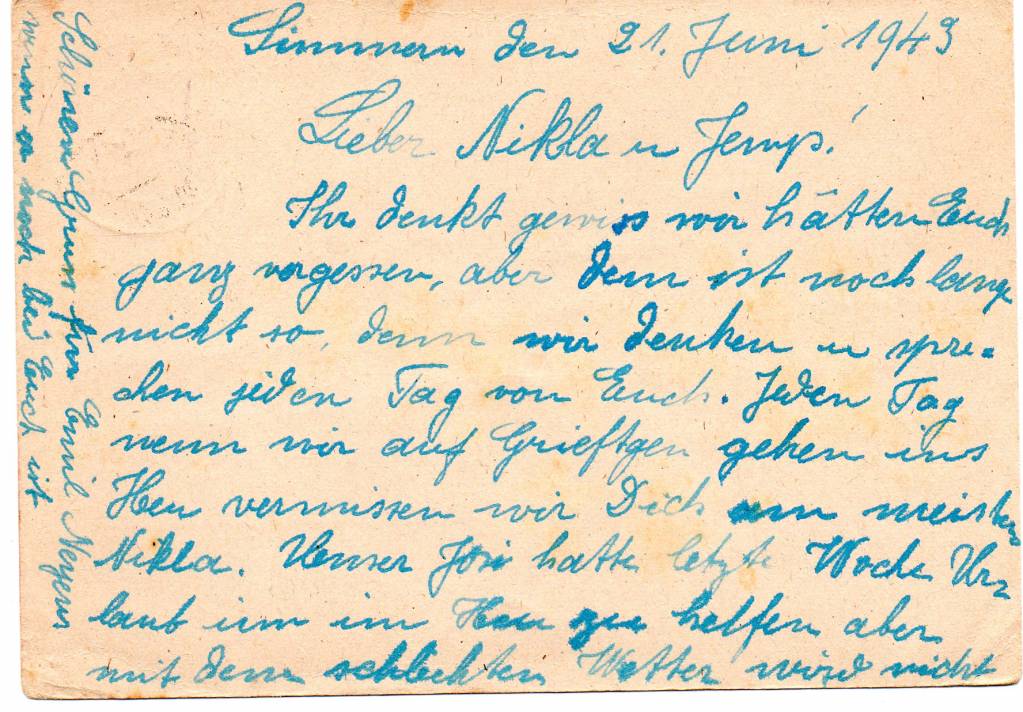 Simmern den 21. Juni 1943
Lieber Nikla u Jemp!
Ihr denkt gewiss wir hätten Euch
ganz vergessen, aber dem ist noch lange
nicht so, denn wir denken u spre-
chen jeden Tag von Euch. Jeden Tag
wenn wir auf Grieftgen gehen ins
Heu vermissen wir Dich am meisten
Nikla. Unser Josi hatte letzte Woche Ur-
laub um im Heu zu helfen aber
mit dem schlechten Wetter wird nicht
Schönen Gruss für Emil
wenn er noch bei Euch ist